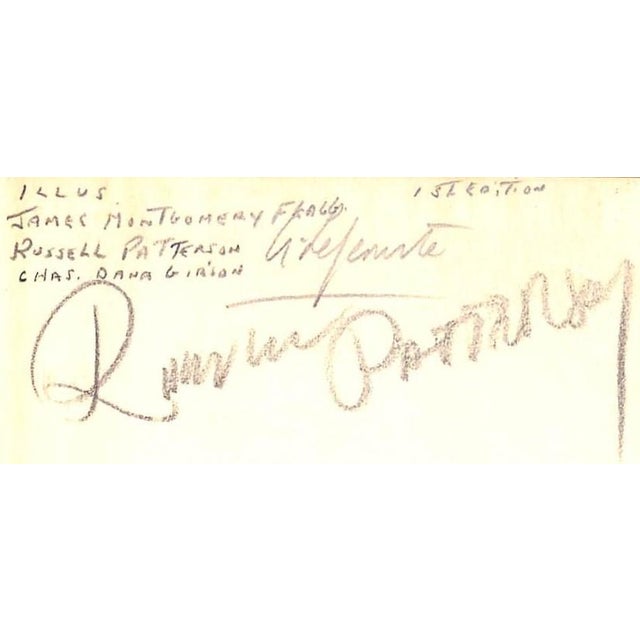 ILLUS. 1ST EDITION
JAMES MONTGOMERY FLAGG.
RUSSELL PATTERSON
CHAS. DANA GIBSON
Russell PATTERSON